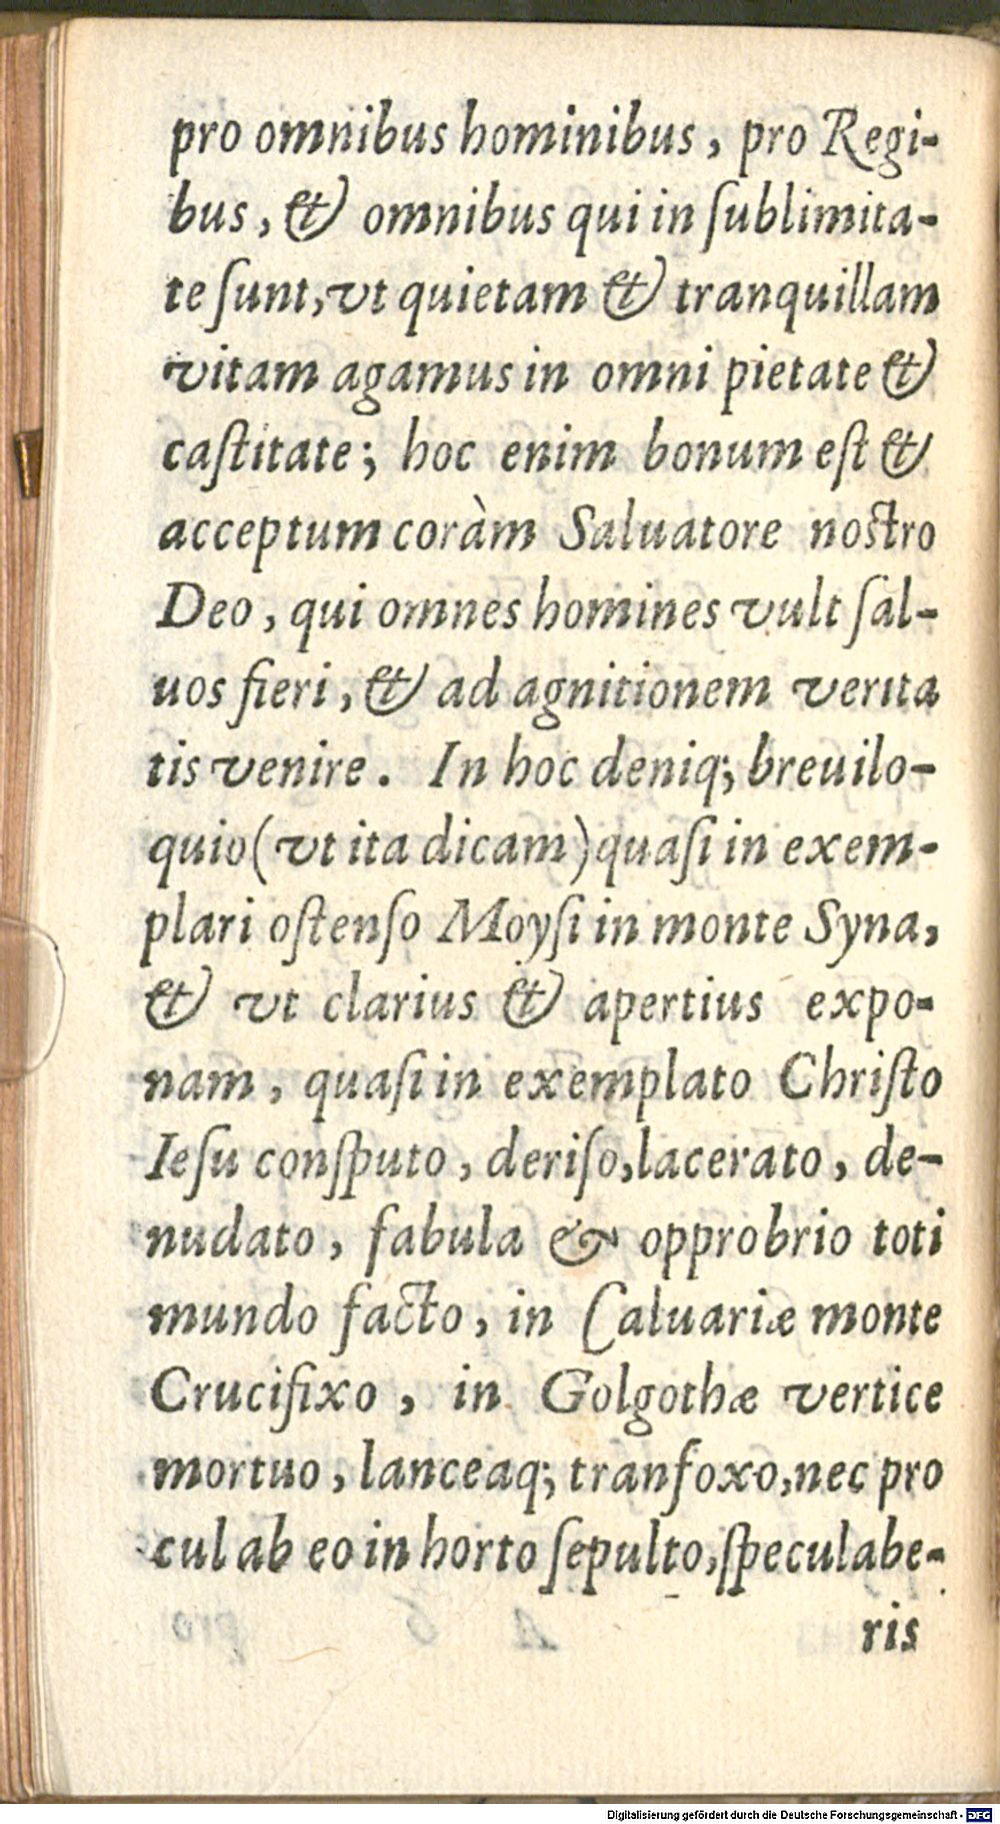 pro omnibus hominibus, pro Regi-
bus, & omnibus qui in ſublimita-
te ſunt, vt quietam & tranquillam
vitam agamus in omni pietate &
caſtitate; hoc enim bonum eſt &
acceptum coràm Saluatore noſtro
Deo, qui omnes homines vult ſal-
uos fieri, & ad agnitionem verita
tis venire. In hoc deniq; breuilo-
quio (vt ita dicam) quaſi in exem-
plari oſtenſo Moyſi in monte Syna,
& vt clarius & apertius expo-
nam, quaſi in exemplato Chriſto
Ieſu conſputo, deriſo, lacerato, de-
nudato, fabula & opprobrio toti
mundo facto, in Caluariæ monte
Crucifixo, in Golgothæ vertice
mortuo, lanceaq; tranfoxo, nec pro
cul ab eo in horto ſepulto, ſpeculabe-
ris
Digitalisierung gefördert durch die Deutsche Forschungsgemeinschaft - DFG